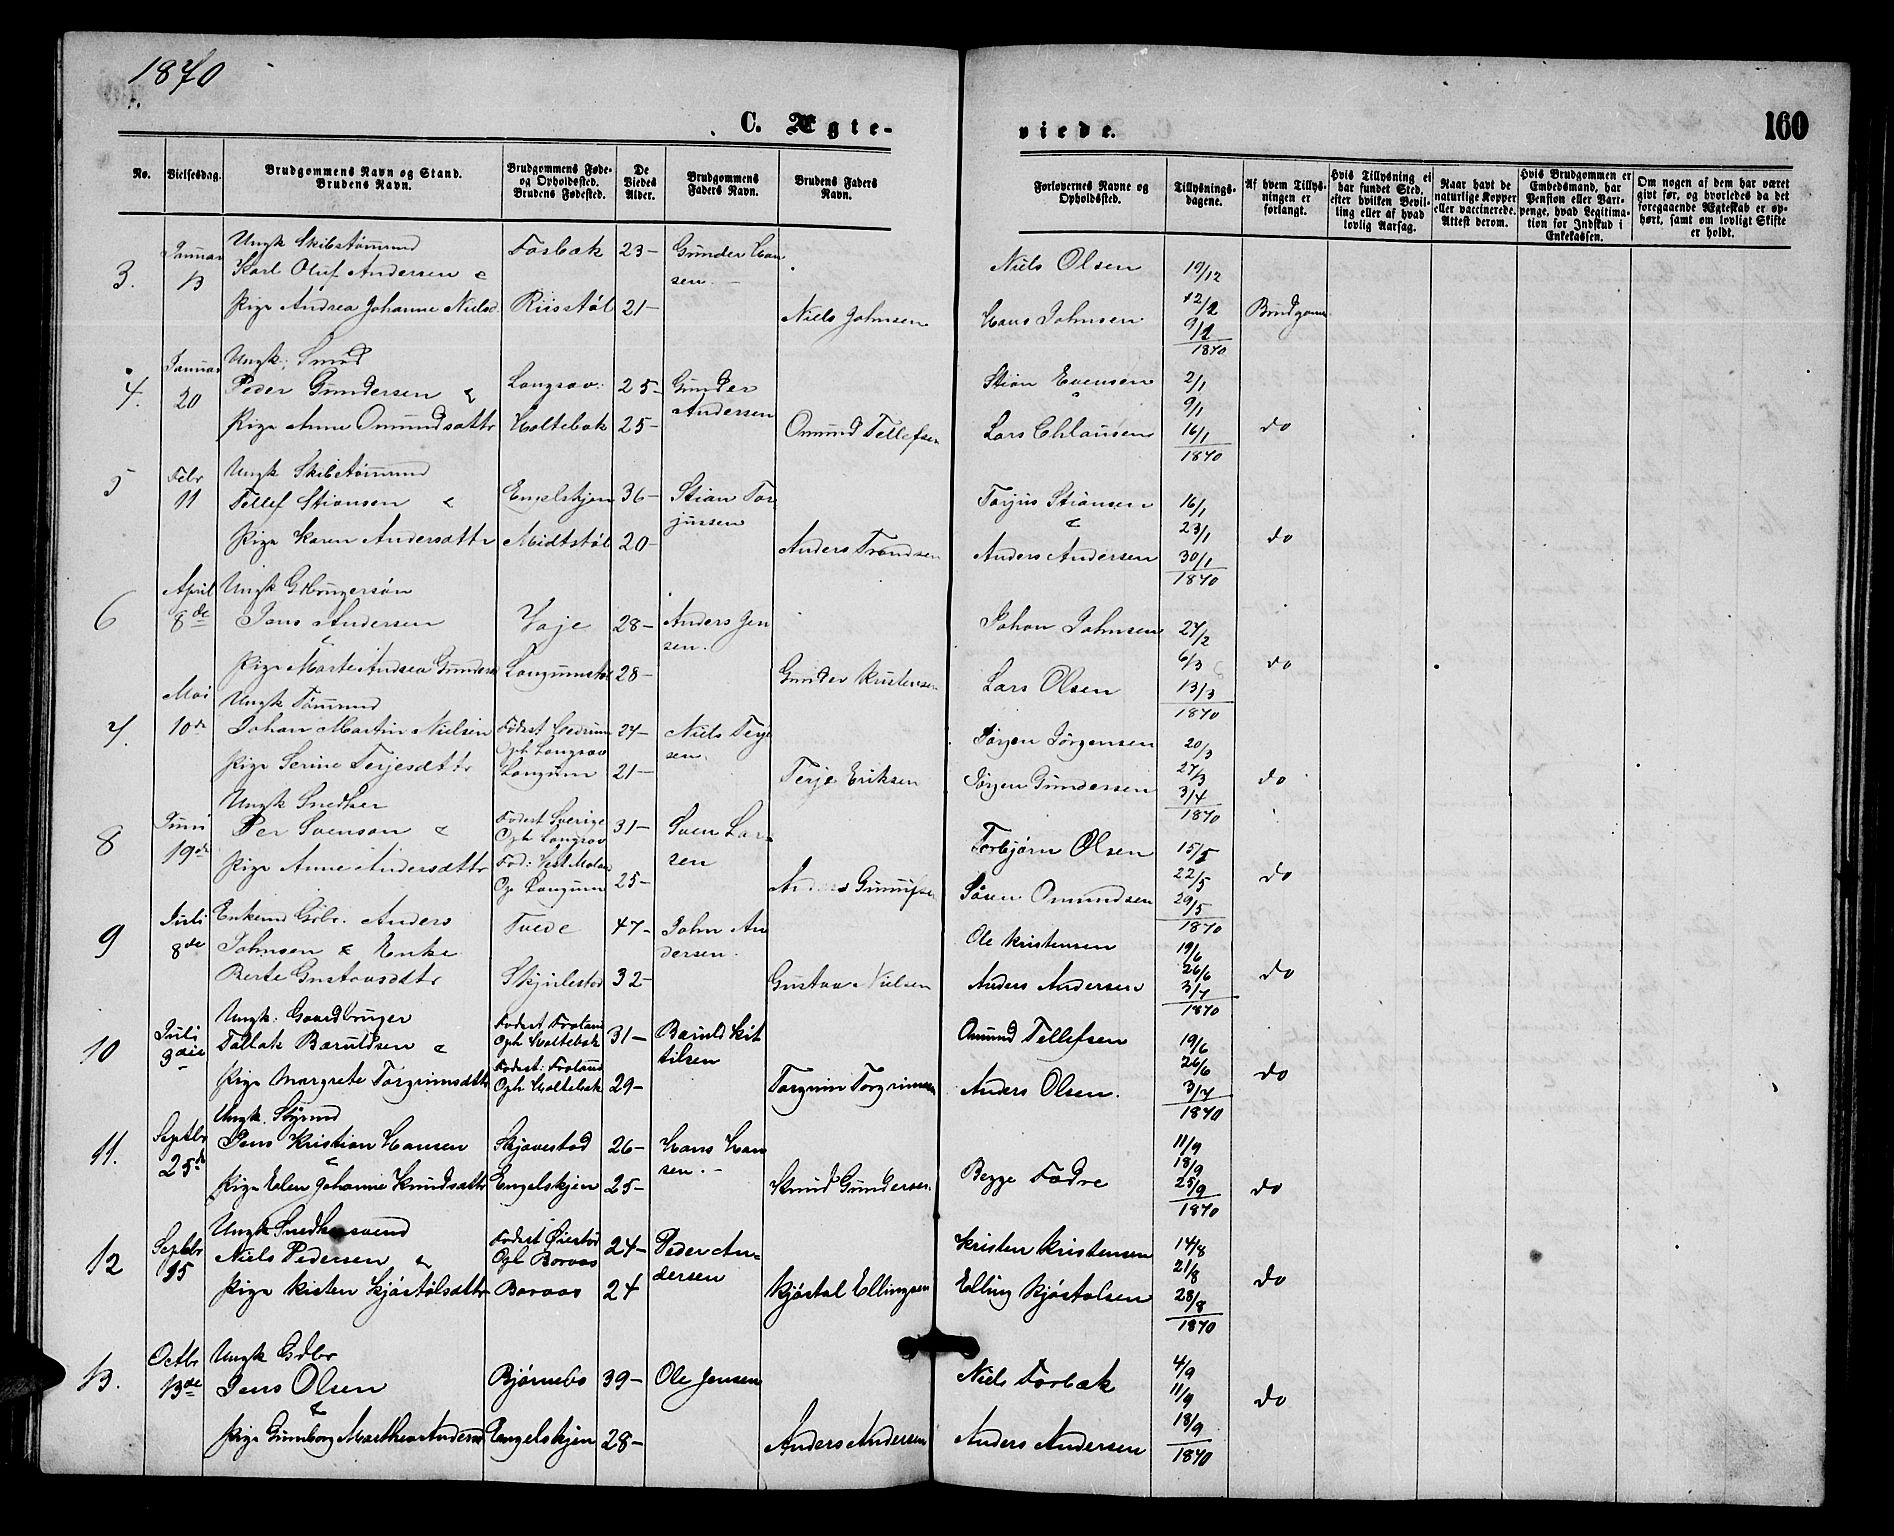 1870
C. Ægte-
viede.
160
No.
Vielsesdag.
Brudgommens Navn og Stand.
Brudens Navn.
Brudgommens Føde-
og Opholdsted.
Brudens Fødested.
De
Viedes
Alder.
Brudgommens
Faders Navn.
Brudens Faders
Navn.
Forlovernes Navne og
Opholdsted.
Tillysnings-
dagene.
Af hvem Tillys-
ningen er
forlangt.
Hvis Tillysning ei
har fundet Sted,
efter hvilken Bevil-
ling eller af hvad
lovlig Aarsag.
Naar havt de
naturlige Kopper
eller vaccinerede.
Attest derom.
Hvis Brudgommen er
Embedsmand, har
Pension eller Vart-
penge, hvad Legitima-
tion for Indskud i
Enkekassen.
Om nogen af dem har været
givt før, og hvorledes da det
foregaaende Ægteskab er op-
hørt, samt om lovligt Skifte
er holdt.
3. Januar 13
Ungk Skibstømmd
Karl Oluf Andersen &
Fosbæk 23- Gunder Han
sen.
Pige Andrea Johanne Nielsd. 21-
Niels Johnsen
Niels Olsen
Hans Johnsen
19/12
9/1
1870
Brudgom
4. Januar 20
Ungk. Smed
Peder Gundersen &
Langsæv. 25- Gunder
Andersen
Pige Anne Omundsdttr Holtebæk 25-
Omund Tellefsen
Stian Evensen
&
Lars Chlausen
2/1
9/1
16/1
1870
do
5 Febr 11
Ungk Skibstømmd
Tellef Stiansen &
Engelskjøn 36- Stian Tor
jussen
Pige Karen Andersdttr Midtstøl 20-
Anders Trondsen
Torjus Stiansen
&
Anders Andersen
16/1
23/1
30/1
1870
do
6 April 8de
Ungk Gbrugersøn
Jens Andersen
&
Vaje 28- Anders Jen
sen.
Pige Marte Andrea Gunders 28-
Gunder Kristensen
Johan Johnsen
Lars Olsen
27/2
6/3
13/3
1870
do
7. Mai 10de
Ungk Tømmd
Johan Martin Nielsen
24- Niels Terje
sen.
Pige Serine Terjesdttr Langum 21-
Terje Eriksen
Jørgen Jørgensen
Jørgen Gundersen
20/3
27/3
3/4
1870
do
8 Juni 19de
Ungk Snedker
Per Svenson &
Fødest Sverige
Oph Langsæv
31- Sven Lar
sen
Pige Anne Andersdttr
Op Langum
25-
Torbjørn Olsen
Søren Omundsen
15/5
22/5
29/5
1870
do
9 Juli 8de
Enkemd Gbr. Anders
Johnsen & Enke
Berte Gustavsdttr
Tvede 47- John An
dersen.
32-
Gustav Nielsen
Ole Kristensen
Anders Andersen
19/6
26/6
3/7
1870
do
10 Juli 3die
Ungk: Gaardbruger
Tallak Baruldsen &
Fødest Froland
Oph Holtebæk
31- Baruld Kit
tilsen
Pige Margrete Torgrimsdttr
Fødest: Froland
Oph Holtebæk
29-
Torgrim Torgrimsen
Omund Tellefsen
Anders Olsen.
19/6
26/6
3/7
1870
do
11. Septbr 25de
Ungk. Styrmd
Jens Kristian Hansen
&
26- Hans Han
sen.-
Pige Elen Johanne Knudsdttr Engelskjøn 25-
Knud Gundersen
Begge Fædre
11/9
18/9
25/9
1870
do
12 Septbr 15
Ungk Snedkersvend
Niels Pedersen &
Fødest Øiestad
Oph Boraas
24- Peder An-
dersen
Pige Kisten Kjøstølsdttr Boraas 24
Kjøstøl Ellingsen
Kristen Kristensen
Elling Kjøstølsen
14/8
21/8
28/8
1870
do
13. Octbr 13de
Ungk Gdbr
Jens Olsen
&
Bjørnebo 39- Ole Jensen
Pige Gunnborg Marthea Andersd Engelskjøn 28-
Anders Andersen
Niels Forbæk
Anders Andersen
4/9
11/9
18/9
1870
do